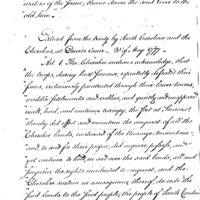 waters of the same; thence down the said River to the
old line.
Extract from the treaty by South Carolina and the
Cherokees, at Dewits Corner 20th May 1777.
Art 1 The Cherokee nation acknowledge, that
the troops, during last summer, repeatedly defeated their
forces, victoriously penetrated through their lower towns,
middle settlements and vallies, and quietly and unopposed
built, held, and continue to occupy, the fort at Seneca;
thereby did effect and maintain the conquest of all the
Cherokee lands, eastward of the Unacaye mountain;
and, to and for their people, did acquire, possess, and
yet continue to hold, in and over the said lands, all and
singular the rights incidental to conquest, and the
Cherokee nation in consequence thereof, do cede the
said lands to the said people, the people of South Carolina